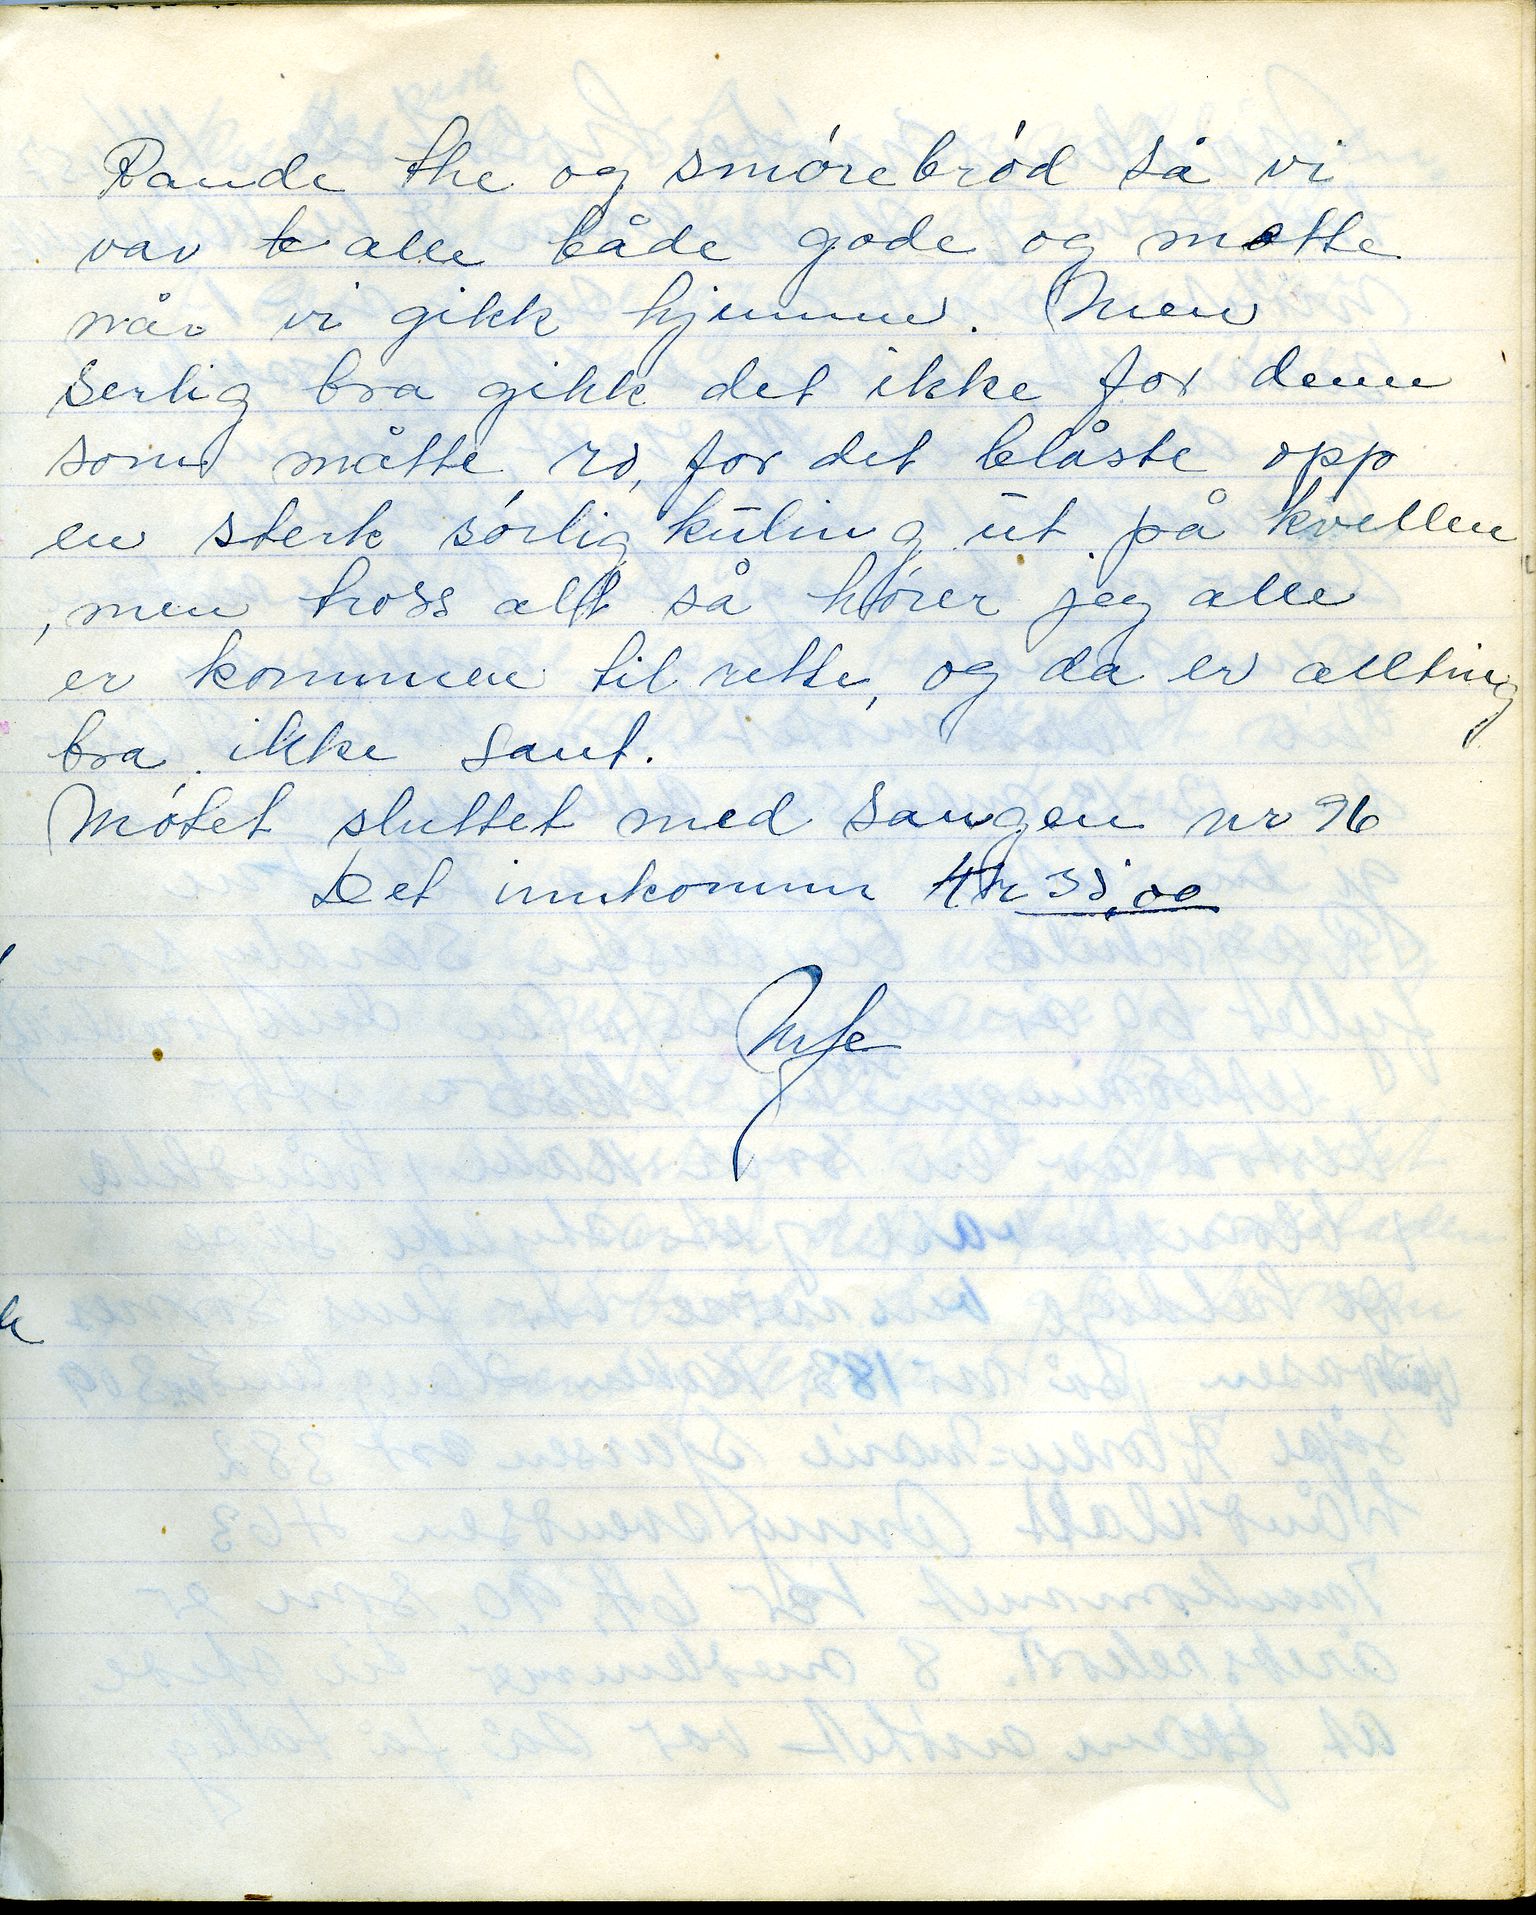 Rande the og smórebród så vi
var alle både gode og mette
når vi gikk hjemme. Men
serlig bra gikk det ikke for dem
som måtte ro, for det blåste opp
en sterk sórlig kūling ūt på kvellen
, men tross alt så hører jeg alle
er kommen til rette, og da er allting
bra ikke sant.
Mótet sluttet med sangen nr 96
Det innkommer kr 35,00